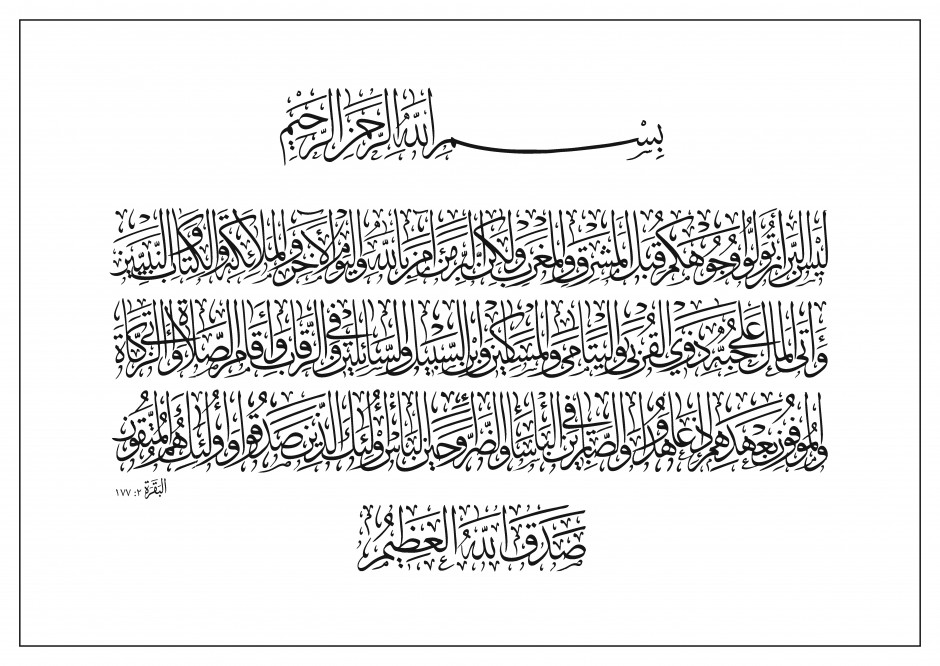 بِسْمِ اللَّهِ الرَّحْمَنِ الرَّحِيمِ
لَيْسَ الْبِرَّ أَنْ تُوَلُّوا وُجُوهَكُمْ قِبَلَ الْمَشْرِقِ وَالْمَغْرِبِ وَلَكِنَّ الْبِرَّ مَنْ آمَنَ بِاللَّهِ وَالْيَوْمِ الْآخِرِ وَالْمَلَائِكَةِ وَالْكِتَابِ وَالنَّبِيِّينَ
وَآتَى الْمَالَ عَلَى حُبِّهِ ذَوِي الْقُرْبَى وَالْيَتَامَى وَالْمَسَاكِينَ وَابْنَ السَّبِيلِ وَالسَّائِلِينَ وَفِي الرِّقَابِ وَأَقَامَ الصَّلَاةَ وَآتَى الزَّكَاةَ
وَالْمُوفُونَ بِعَهْدِهِمْ إِذَا عَاهَدُوا وَالصَّابِرِينَ فِي الْبَأْسَاءِ وَالضَّرَّاءِ وَحِينَ الْبَأْسِ أُولَئِكَ الَّذِينَ صَدَقُوا وَأُولَئِكَ هُمُ الْمُتَّقُونَ
البَقَرَة ٢: ١٧٧
صَدَقَ اللَّهُ الْعَظِيمُ